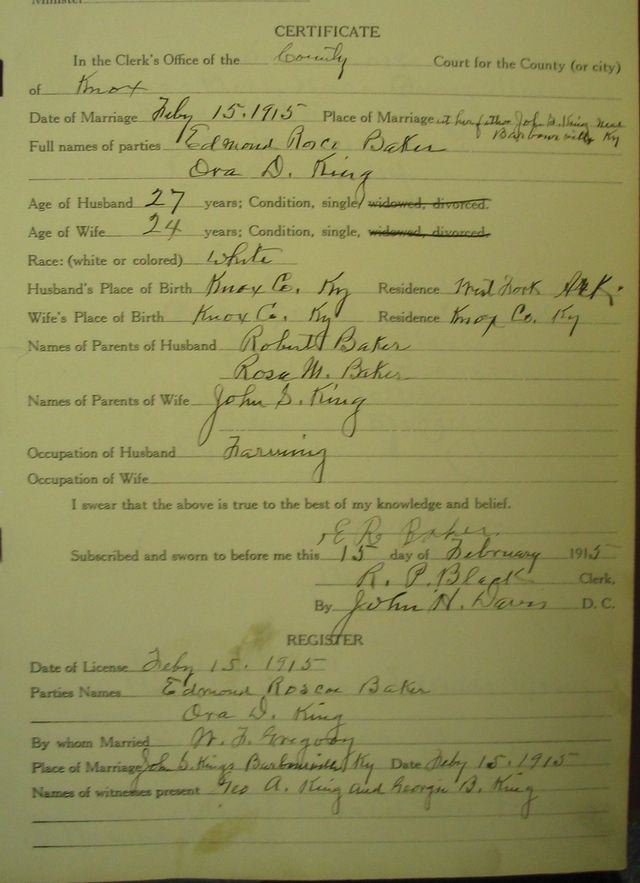 Minister
CERTIFICATE
In the Clerk's Office of the County Court for the County (or city)
of Knox
Date of Marriage Feby 15. 1915 Place of Marriage at her father John S. King near
Barbourville Ky
Full names of parties Edmond Rosco Baker
Ova D. King
Age of Husband 27 years; Condition, single, widowed, divorced.
Age of Wife 24 years; Condition, single, widowed, divorced.
Race: (white or colored) White
Husband's Place of Birth Knox Co. Ky Residence West Fork Ark.
Wife's Place of Birth Knox Co. Ky Residence Knox Co. Ky
Names of Parents of Husband Robert Baker
Rosa M. Baker
Names of Parents of Wife John S. King
Occupation of Husband Farming
Occupation of Wife
I swear that the above is true to the best of my knowledge and belief.
E R Baker.
Subscribed and sworn to before me this 15 day of February 1915
R. P. Black Clerk,
By John H. Davis D. C.
REGISTER
Date of License Feby 15. 1915
Parties Names Edmond Roscoe Baker
Ova D. King
By whom Married W. F. Gregory
Place of Marriage John S. Kings Barbourville Ky Date Feby 15. 1915
Names of witnesses present Geo A. King and Georgia B. King